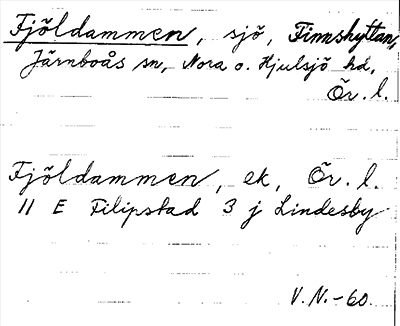 Fjöldammen, sjö, Finnshyttan,
Järnboås sn, Nora o. Hjulsjö hd,
Ör. l.
Fjöldammen, ek, Ör. l.
11 E Filipstad 3 j Lindesby
V. N. -60.